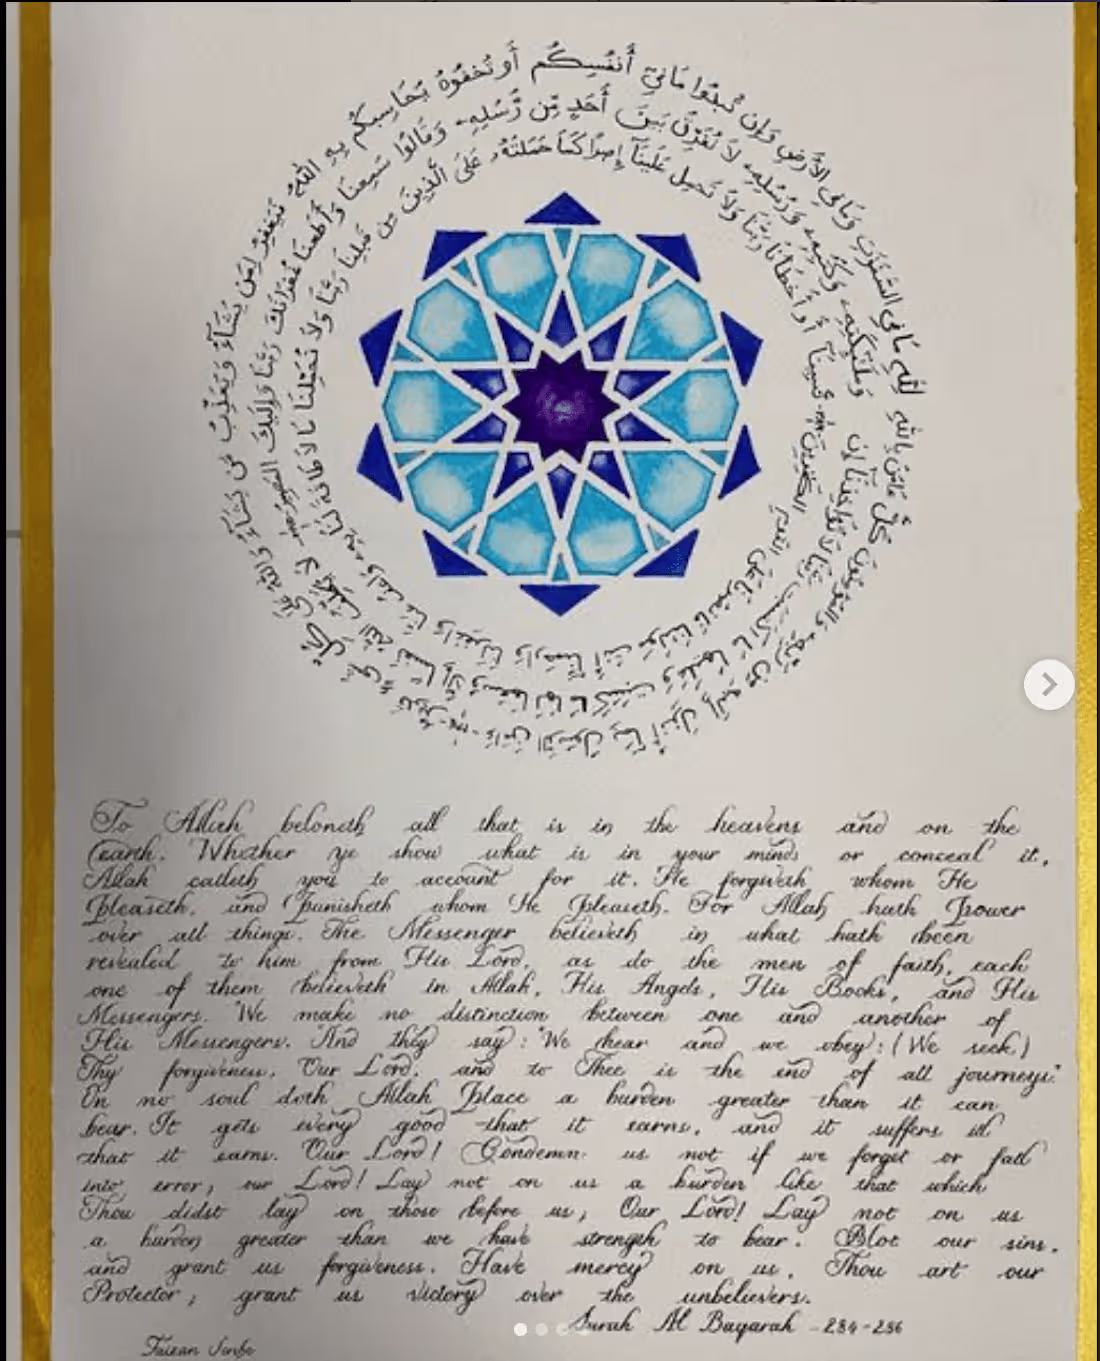 لِلَّهِ مَا فِي السَّمَٰوَٰتِ وَمَا فِي الْأَرْضِ وَإِن تُبْدُوا مَا فِي أَنفُسِكُمْ أَوْ تُخْفُوهُ يُحَاسِبْكُم بِهِ اللَّهُ فَيَغْفِرُ لِمَن يَشَآءُ وَيُعَذِّبُ مَن يَشَآءُ وَاللَّهُ عَلَىٰ كُلِّ شَيْءٍ قَدِيرٌ ءَامَنَ الرَّسُولُ بِمَا أُنزِلَ إِلَيْهِ مِن رَّبِّهِ وَالْمُؤْمِنُونَ كُلٌّ ءَامَنَ بِاللَّهِ
وَمَلَٰٓئِكَتِهِ وَكُتُبِهِ وَرُسُلِهِ لَا نُفَرِّقُ بَيْنَ أَحَدٍ مِّن رُّسُلِهِ وَقَالُوا سَمِعْنَا وَأَطَعْنَا غُفْرَانَكَ رَبَّنَا وَإِلَيْكَ الْمَصِيرُ لَا يُكَلِّفُ اللَّهُ نَفْسًا إِلَّا وُسْعَهَا لَهَا مَا كَسَبَتْ وَعَلَيْهَا مَا اكْتَسَبَتْ رَبَّنَا لَا تُؤَاخِذْنَآ إِن
نَّسِينَآ أَوْ أَخْطَأْنَا رَبَّنَا وَلَا تَحْمِلْ عَلَيْنَآ إِصْرًا كَمَا حَمَلْتَهُ عَلَى الَّذِينَ مِن قَبْلِنَا رَبَّنَا وَلَا تُحَمِّلْنَا مَا لَا طَاقَةَ لَنَا بِهِ وَاعْفُ عَنَّا وَاغْفِرْ لَنَا وَارْحَمْنَآ أَنتَ مَوْلَىٰنَا فَانصُرْنَا عَلَى الْقَوْمِ الْكَٰفِرِينَ
To Allah beloneth all that is in the heavens and on the
earth. Whether ye show what is in your minds or conceal it,
Allah calleth you to account for it. He forgiveth whom He
pleaseth, and punisheth whom He pleaseth. For Allah hath power
over all things. The Messenger believeth in what hath been
revealed to him from His Lord, as do the men of faith, each
one of them believeth in Allah, His Angels, His Books, and His
Messengers. "We make no distinction between one and another of
His Messengers. "And they say: "We hear and we obey: (We seek)
Thy forgiveness, Our Lord, and to Thee is the end of all journeys."
On no soul doth Allah place a burden greater than it can
bear. It gets every good that it earns, and it suffers ill
that it earns. "Our Lord! Condemn us not if we forget or fall
into error; our Lord! Lay not on us a burden like that which
Thou didst lay on those before us; Our Lord! Lay not on us
a burden greater than we have strength to bear. Blot our sins,
and grant us forgiveness. Have mercy on us. Thou art our
Protector; grant us victory over the unbelievers.
Surah Al Baqarah - 284-286
Faizan